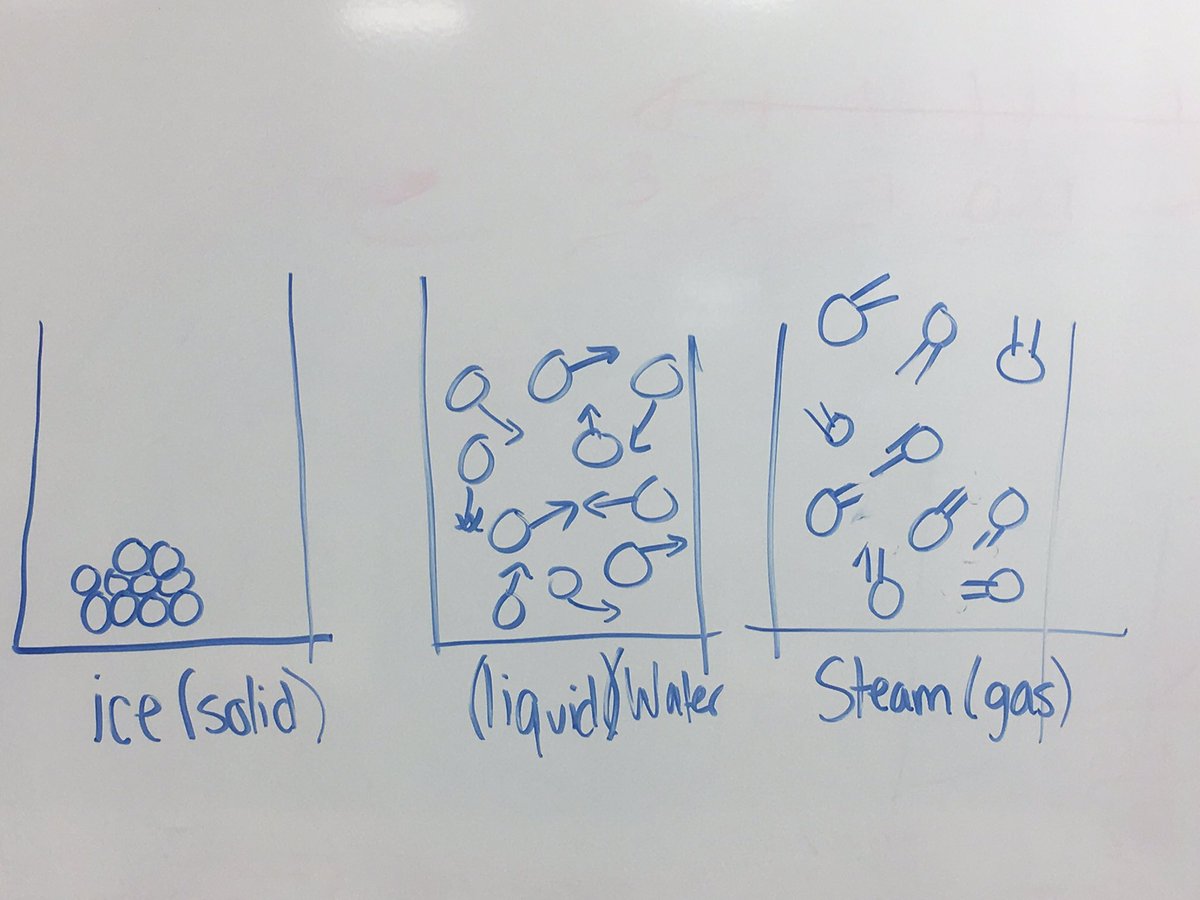 ice (solid)
(liquid) Water
Steam (gas)